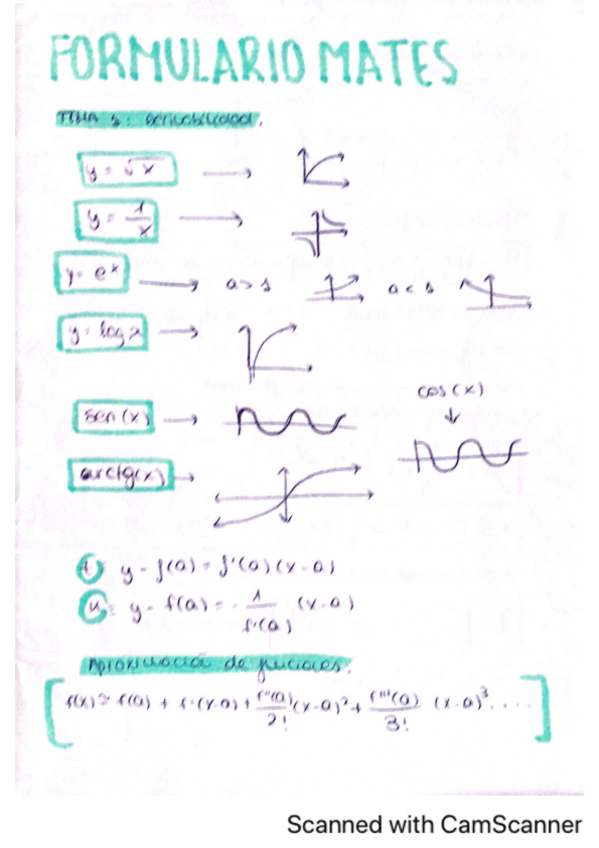 FORMULARIO MATES
TEMA 1: Derivabilidad.
y = √x →
y = 1/x →
y = e^x → a > 1 a < 1
y = log x →
cos(x)
↓
sen(x) →
arctg(x) →
t: y - f(a) = f'(a)(x-a)
n: y - f(a) = - 1/f'(a) (x-a)
Aproximación de funciones:
f(x) ≈ f(a) + f'(x-a) + f''(a)/2! (x-a)² + f'''(a)/3! (x-a)³ ....
Scanned with CamScanner